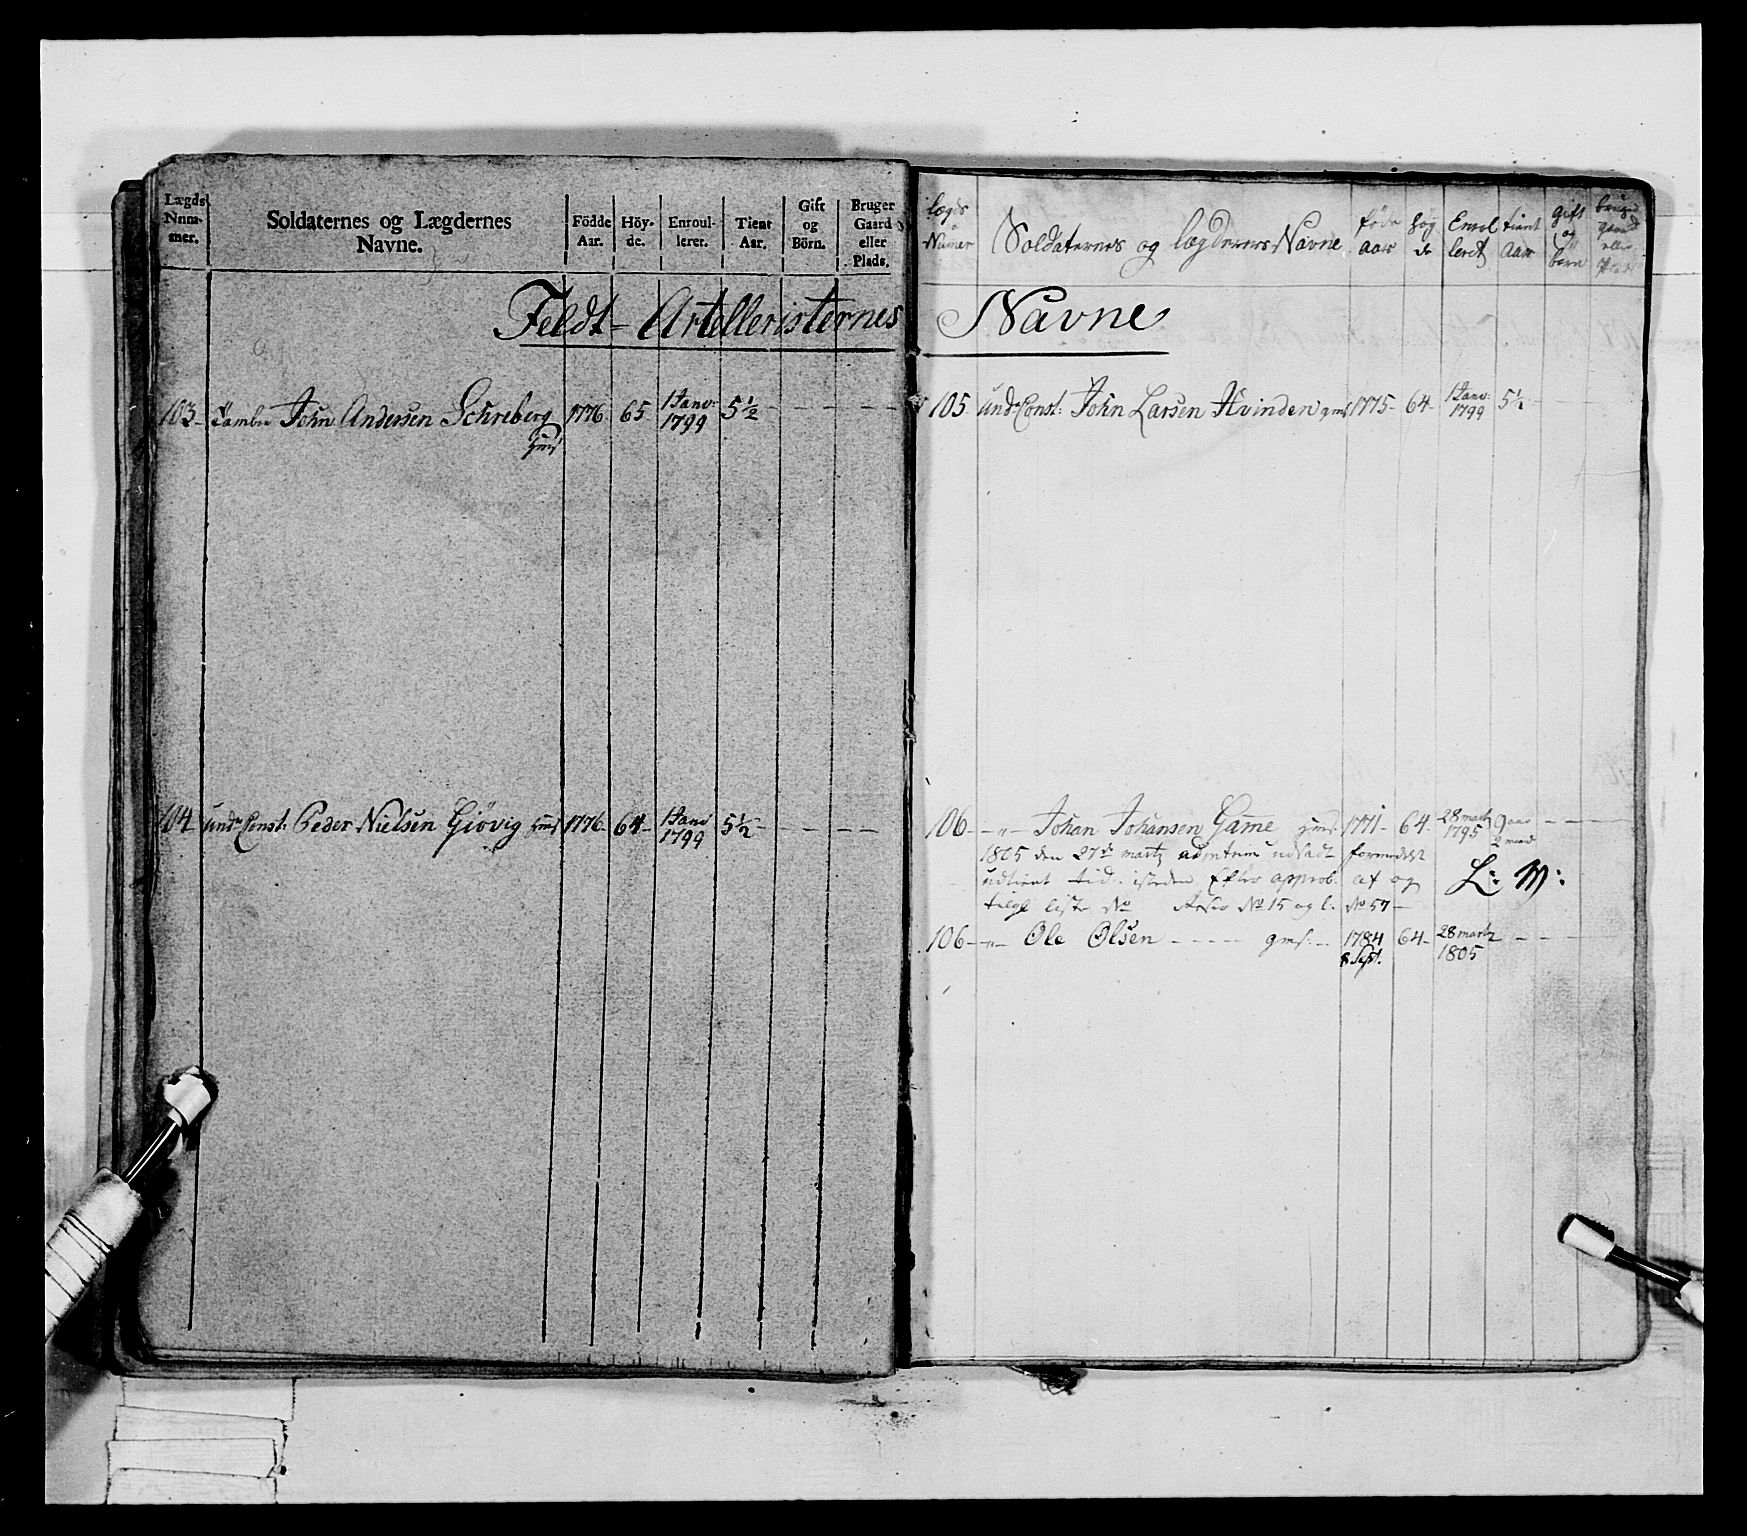 Lægds Nnmmer.
Soldaternes og Lægdernes Navne.
Födde Aar.
Höyde.
Enroullerer.
Tient Aar.
Gift og Börn.
Bruger Gaard eller Plads.
Feldt-Artelleristernes
103 Tambur John Andersen Schreberg 1776 65 1 Janv: 1799 5½
104 Und: Const: Peder Nielsen Giövig 1776 64 1 Janv 1799 5½
lægds Numer
Soldaternes og lægdernes Navne
føde aar
høyde
Enrolleret
tient Aar
Gift og børn
Navne
105 Und: Const: John Larsen Hvinden gms 1775 64 1 Janv: 1799 5½
106 - „ - Johan Johansen Game 1771 64 28 martz 1795 9 aar 2 maand
1805 den 27de martz udsadt formedelst
udtient tid. isteden Efter approb. af og
liste No No 15 og l. No 57
L: M:
106 - „ - Ole Olsen gms: 1784 64 28 martz
8 Sept. 1805